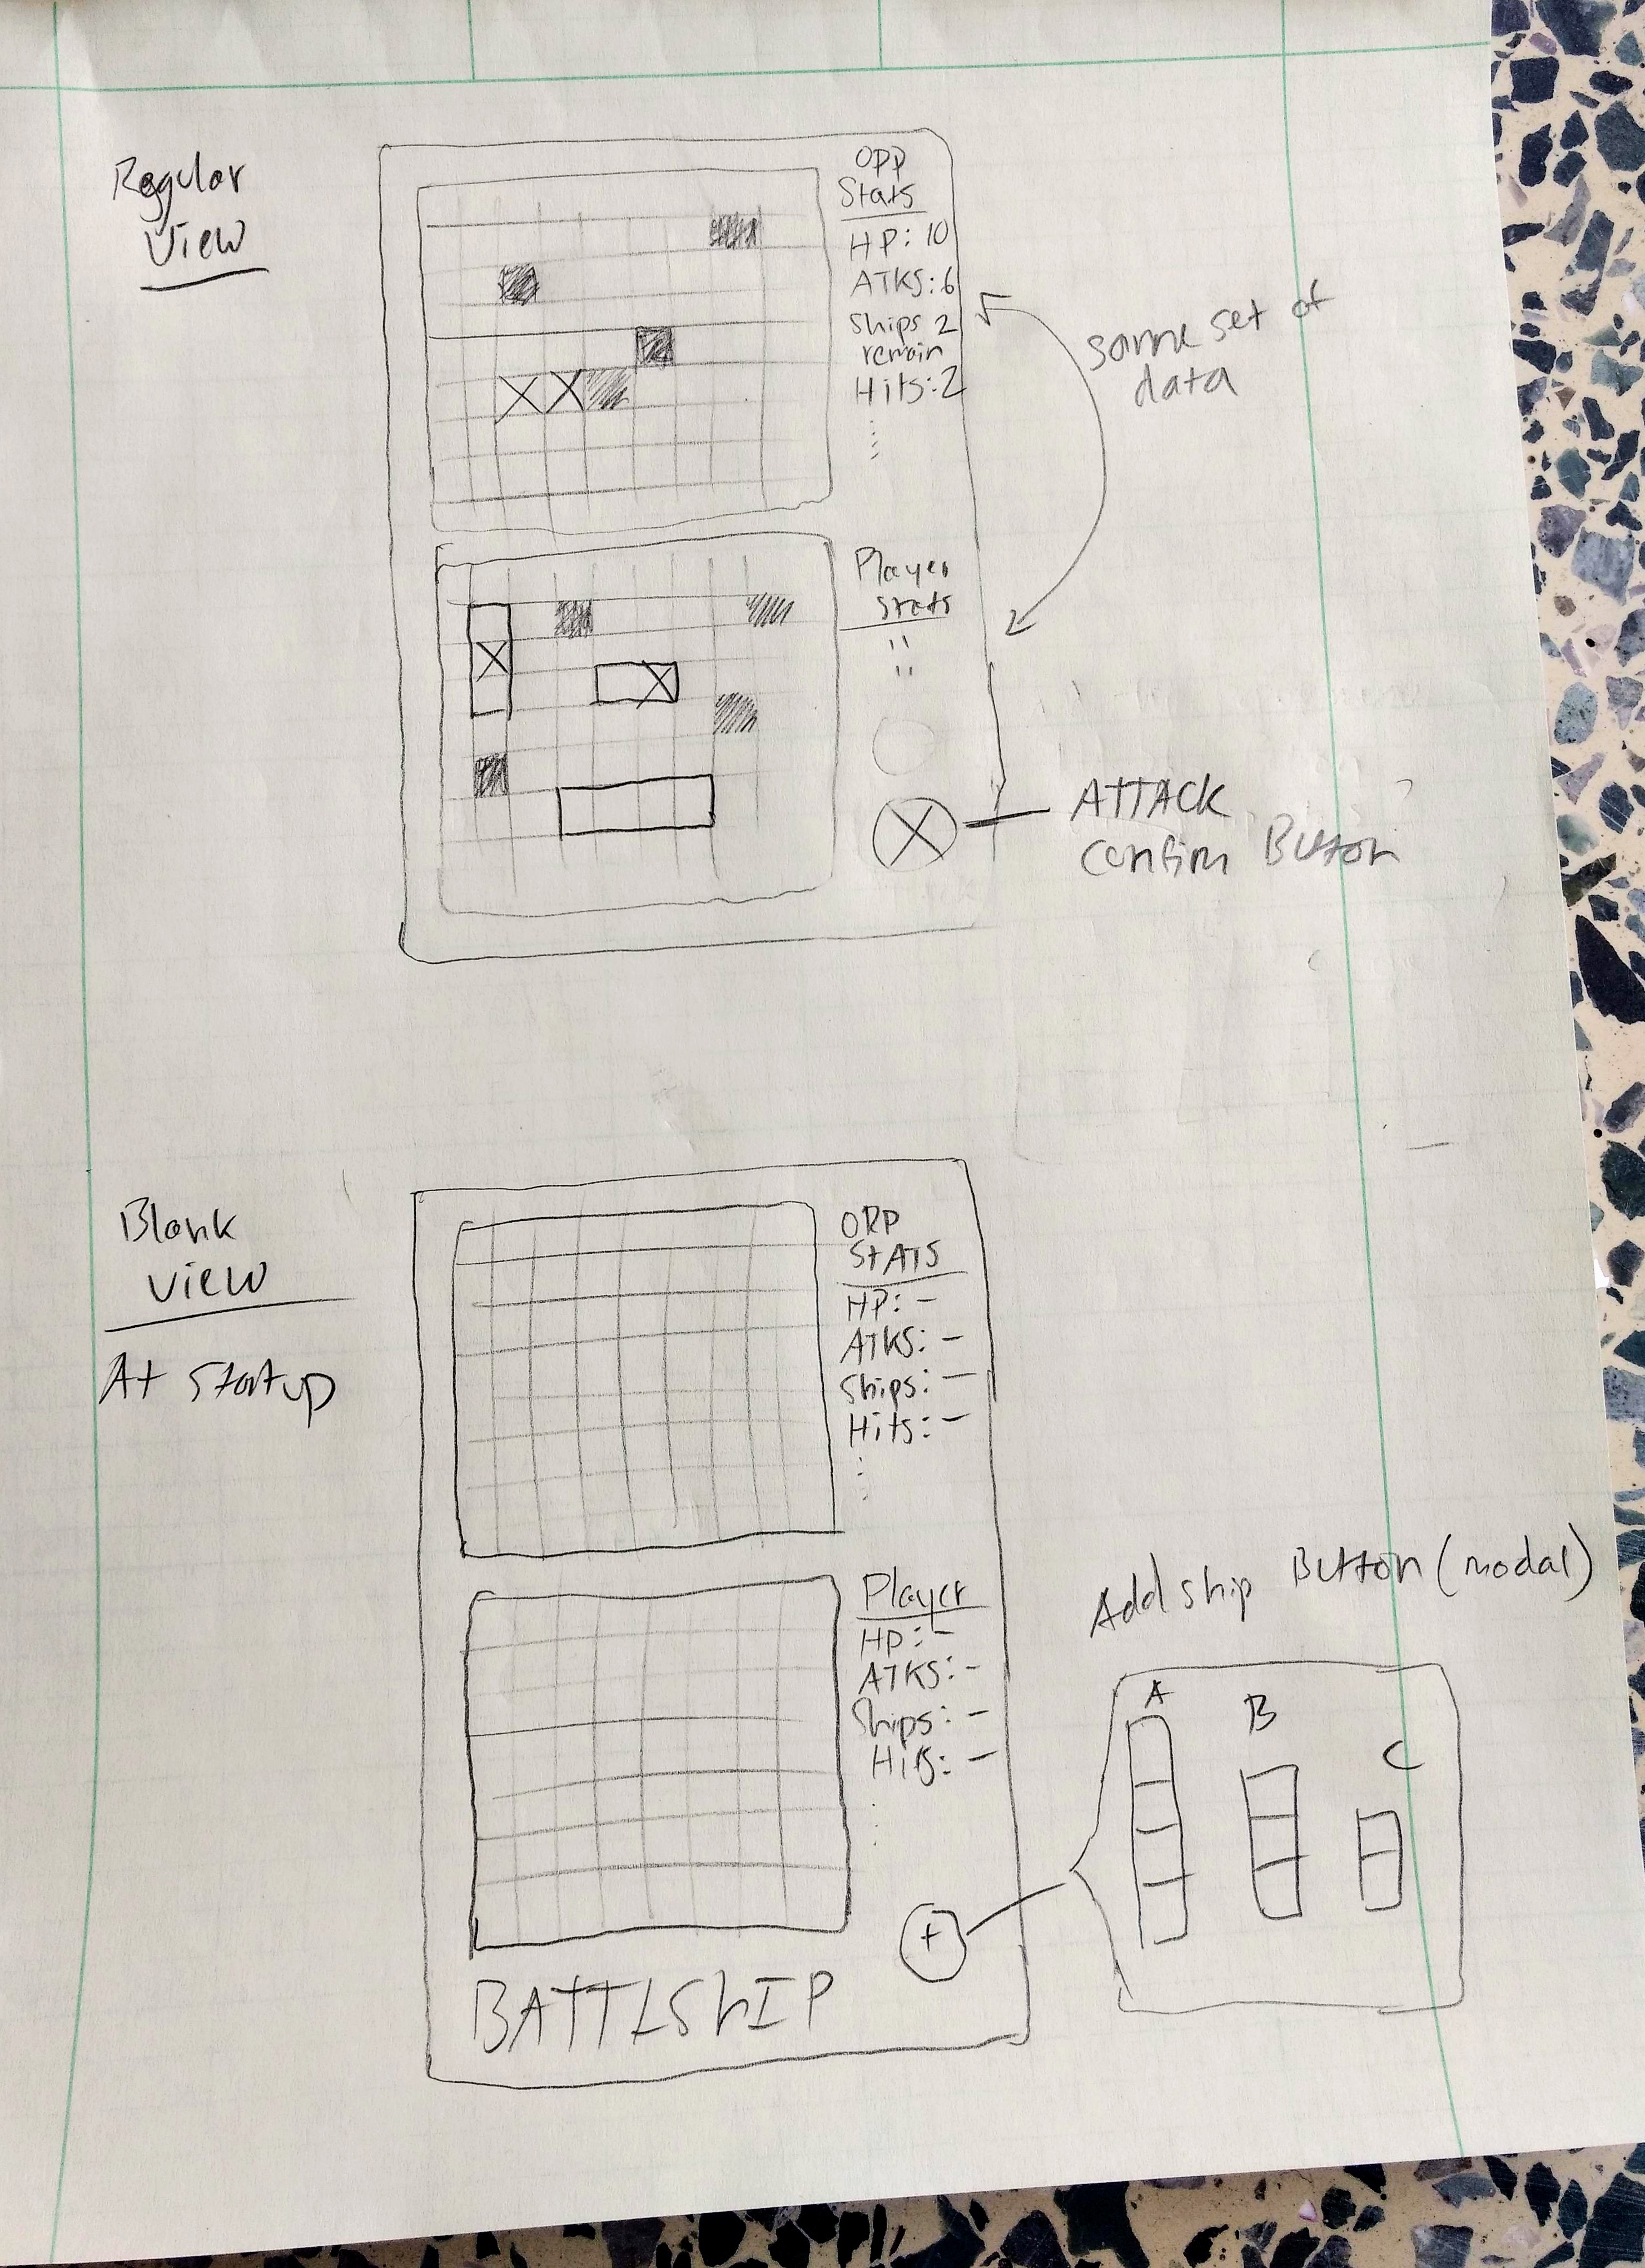 Regular
View
OPP
Stats
HP: 10
ATKS: 6
Ships 2
remain
Hits: 2
same set of
data
Player
Stats
"
"
ATTACK
Confirm Button
Blank
View
At Startup
OPP
STATS
HP: -
ATKS: -
Ships: -
Hits: -
Player
HP: -
ATKS: -
Ships: -
Hits: -
+
Add ship Button (modal)
A
B
C
BATTLSHIP